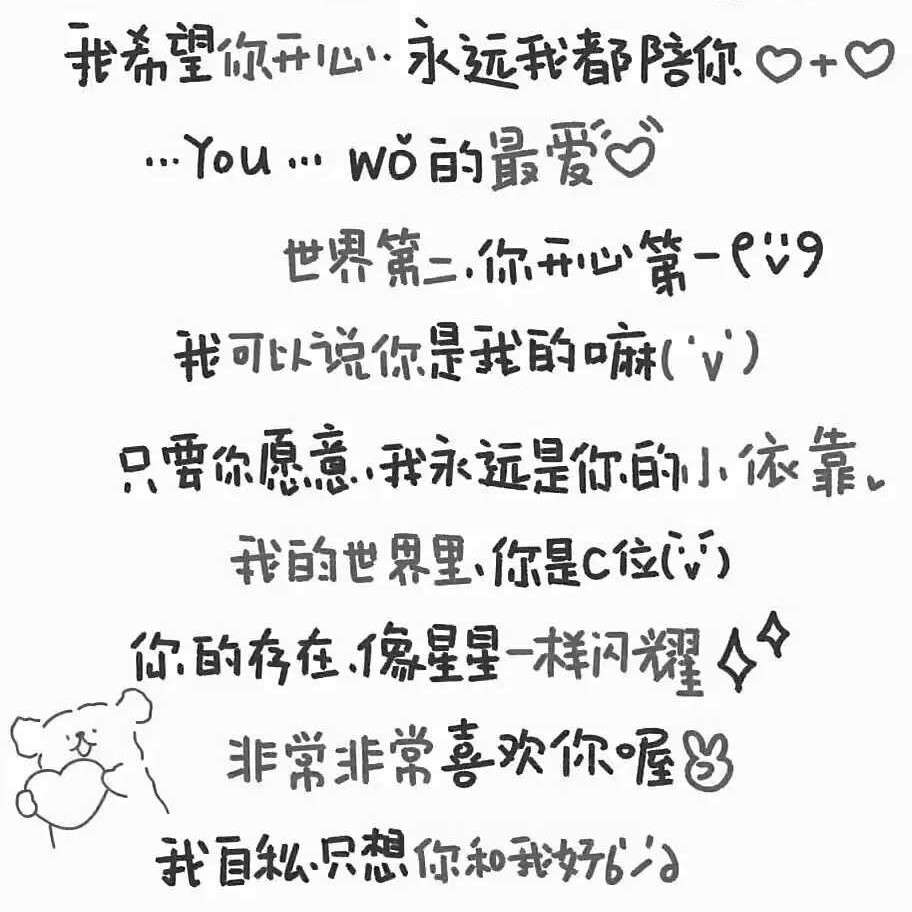 我希望你开心.永远我都陪你♡+♡
…You… wǒ的最爱♡
世界第二.你开心第一
我可以说你是我的嘛('v')
只要你愿意.我永远是你的小依靠.
我的世界里.你是C位
你的存在.像星星一样闪耀
非常非常喜欢你喔
我自私.只想你和我好